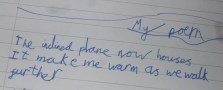 My poem
The plane now houses
It make me warm as we walk
further